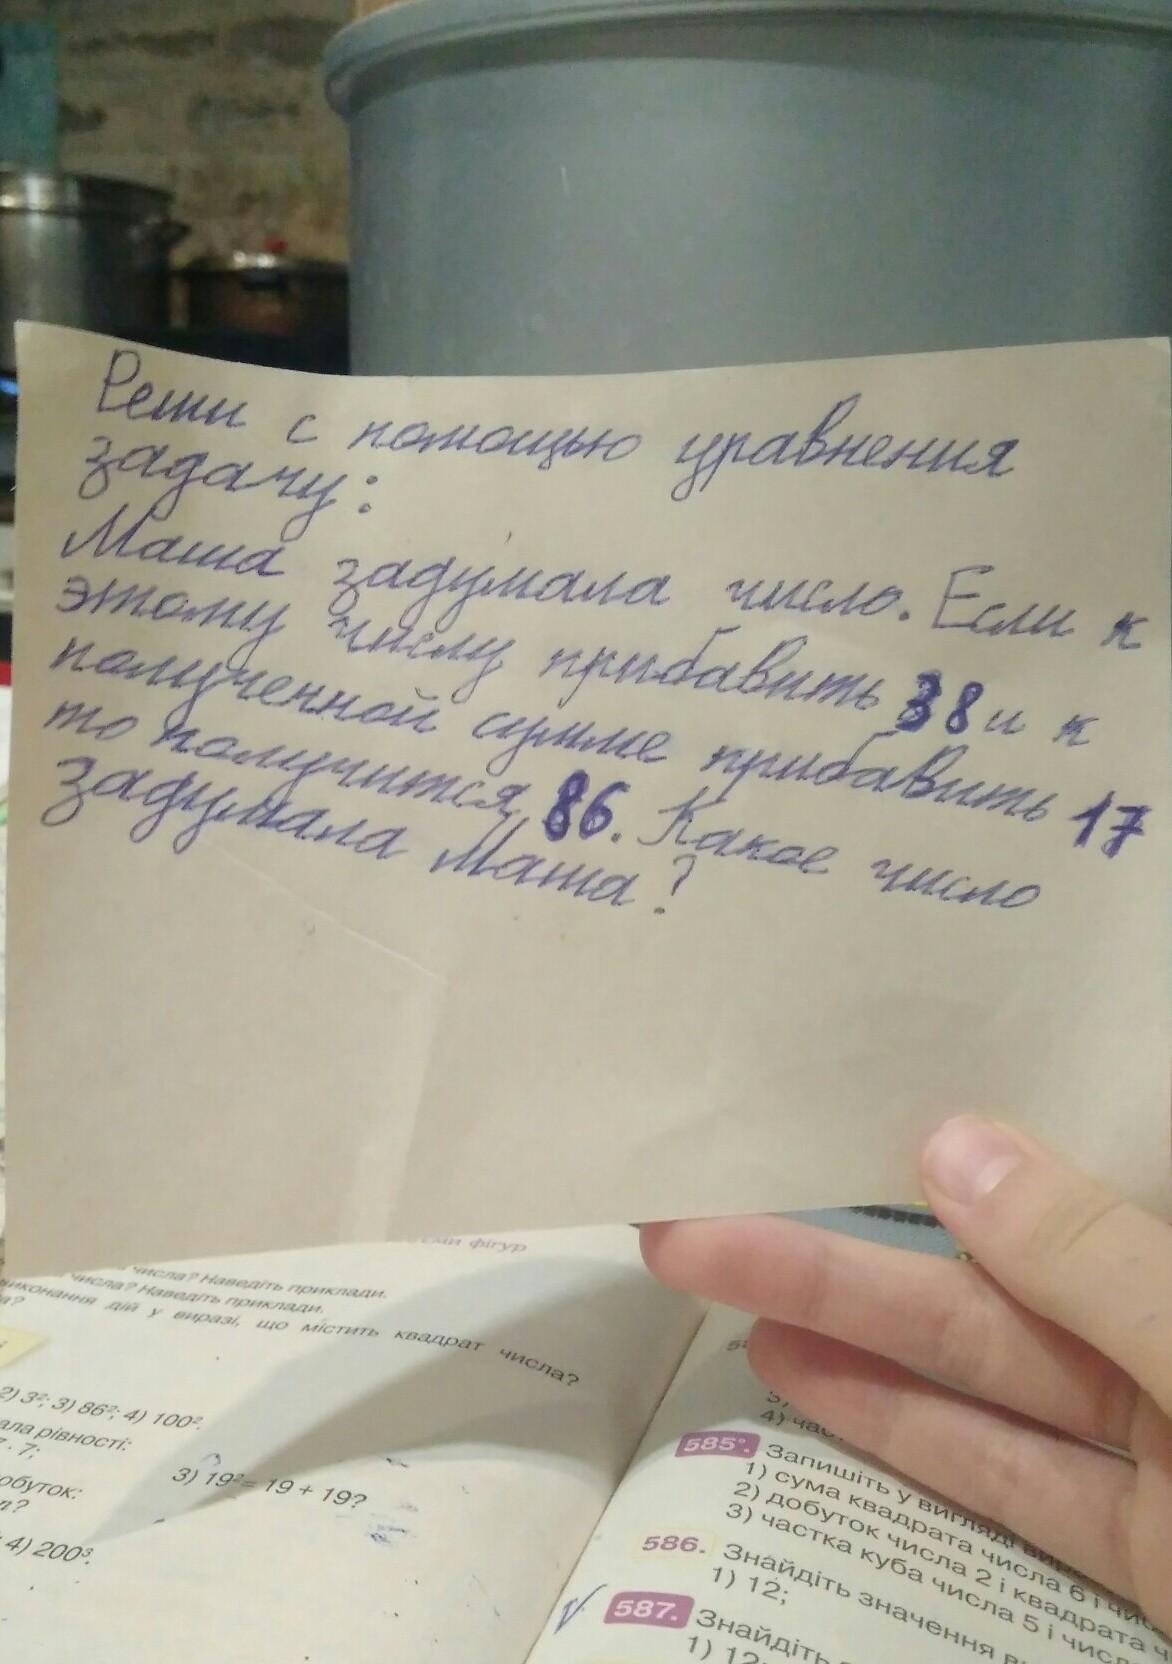 Реши с помощью уравнения
задачу:
Маша задумала число. Если к
этому числу прибавить 38 и к
полученной сумме прибавить 17
то получится 86. Какое число
задумала Маша?
фігур
числа? Наведіть приклади.
числа? Наведіть приклади.
виконання дій у виразі, що містить квадрат числа?
2) 3²; 3) 86²; 4) 100².
рівності:
7;
3) 19² = 19 + 19?
4) 200³.
3)
4)
585°. Запишіть у вигляді
1) сума квадрата числа 6 і
2) добуток числа 2 і квадрата
3) частка куба числа 5 і
586. Знайдіть значення
1) 12;
587. Знайдіть
1) 12